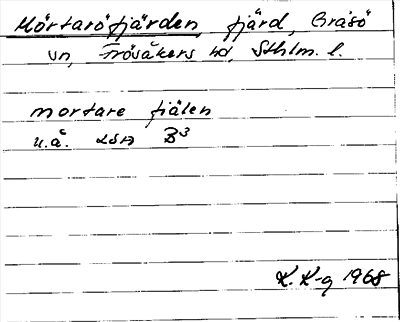 Mörtaröfjärden, fjärd, Gräsö
sn, Frösåkers hd, Sthlm. l.
mortare fiälen
u.å. LSA B³
K. K-g 1968